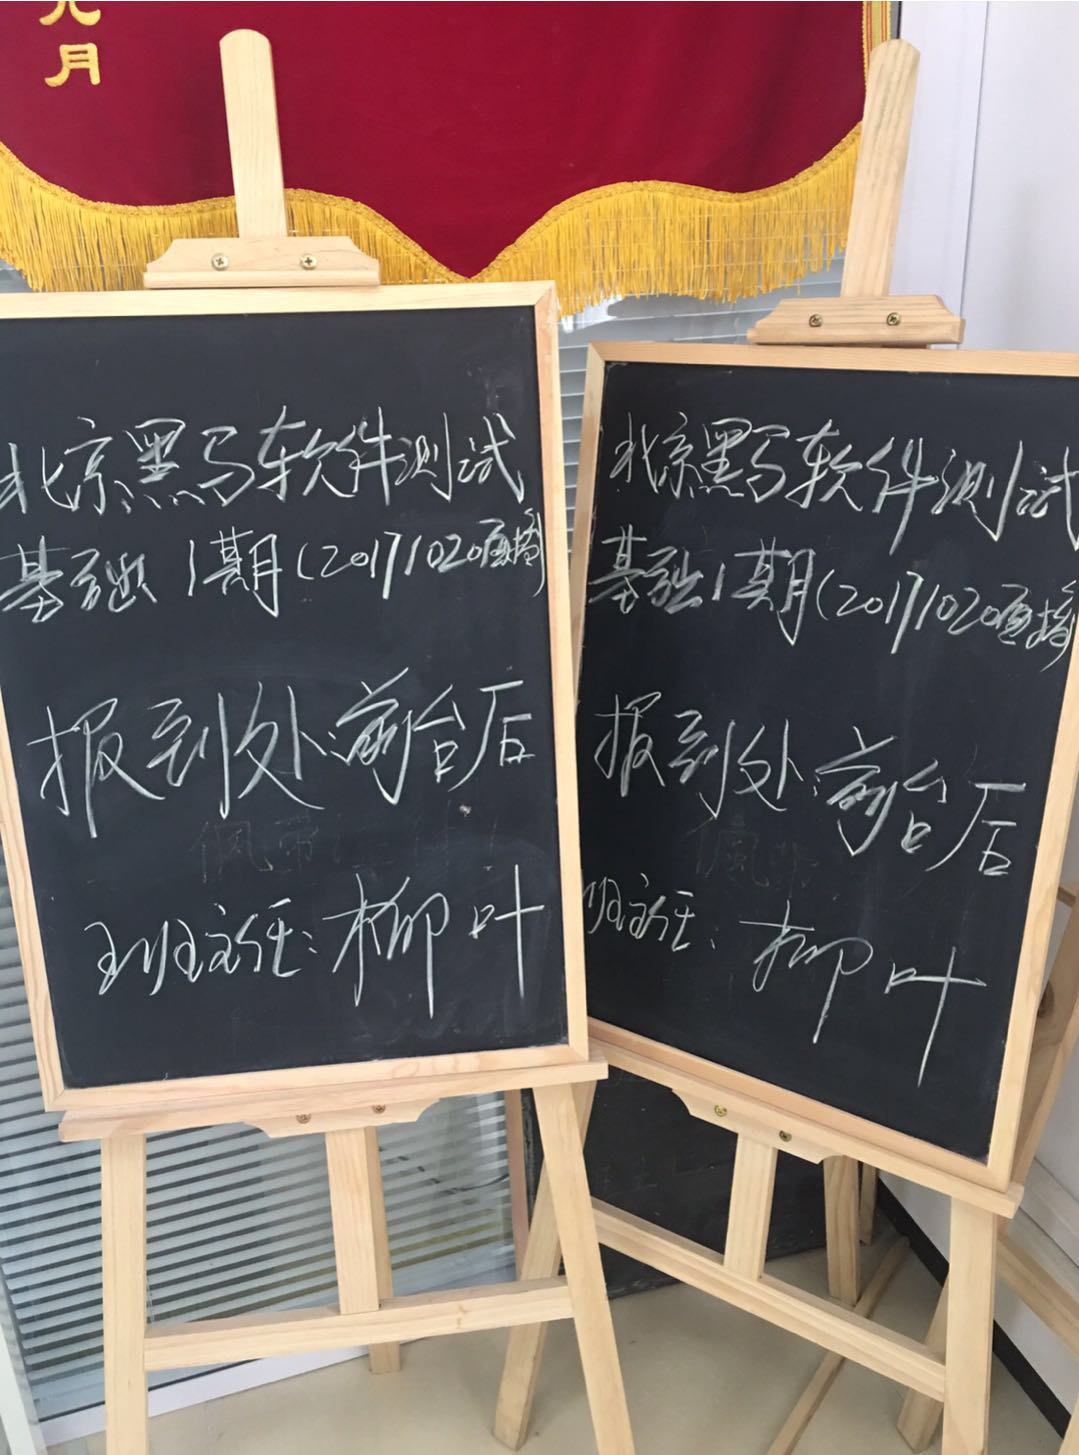 月
北京黑马软件测试
基础1期(20171020面授)
报到处:前台后
班主任:柳叶
北京黑马软件测试
基础1期(20171020面授)
报到处:前台后
班主任:柳叶